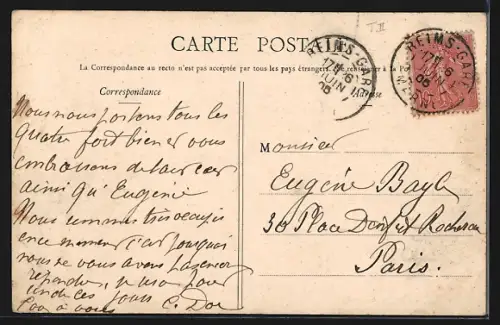 T.II
CARTE POSTALE
La Correspondance au recto n'est pas acceptée par tous les pays étrangers. Se renseigner à la
REIMS-GARE
17H 6
JUIN
06
REIMS-GARE
17H 6
JUIN
06
MARNE
Correspondance
Adresse
Nous nous portons tous les
quatre fort bien et vous
embrassons de tout cœur
ainsi qu'Eugénie
Nous sommes très occupés
en ce moment c'est pourquoi
nous ne vous avons pas encore
répondu, je
un de ces jours
C. Doé
à vous
Monsieur
Eugène Bayle
30 Place Denfert Rochereau
Paris.